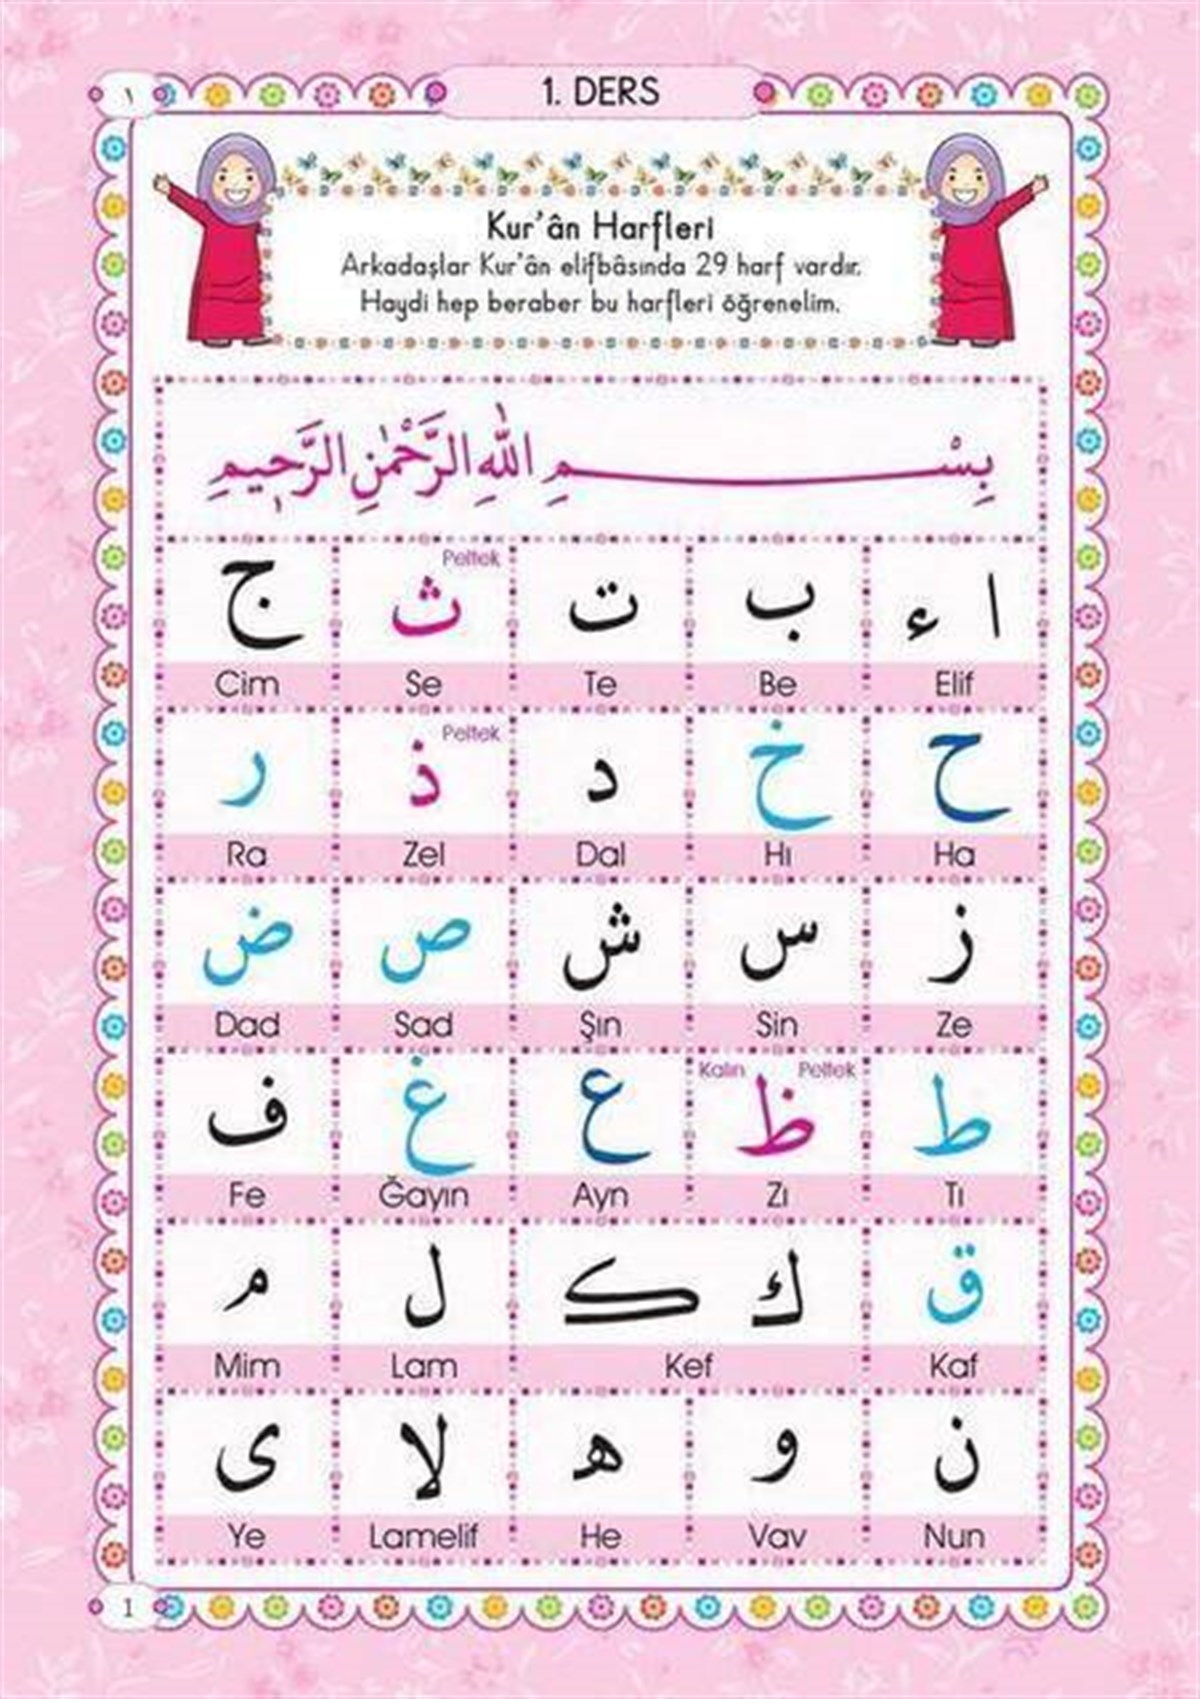 ١
1. DERS
Kur'ân Harfleri
Arkadaşlar Kur'ân elifbâsında 29 harf vardır.
Haydi hep beraber bu harfleri öğrenelim.
بِسْــــــــمِ اللّٰهِ الرَّحْمٰنِ الرَّح۪يمِ
Peltek
ا ء ب ت ث ج
Elif Be Te Se Cim
Peltek
ح خ د ذ ر
Ha Hı Dal Zel Ra
ز س ش ص ض
Ze Sin Şın Sad Dad
Kalın Peltek
ط ظ ع غ ف
Tı Zı Ayn Ğayın Fe
ق ك ڪ ل م
Kaf Kef Lam Mim
ن و ه لا ى
Nun Vav He Lamelif Ye
1